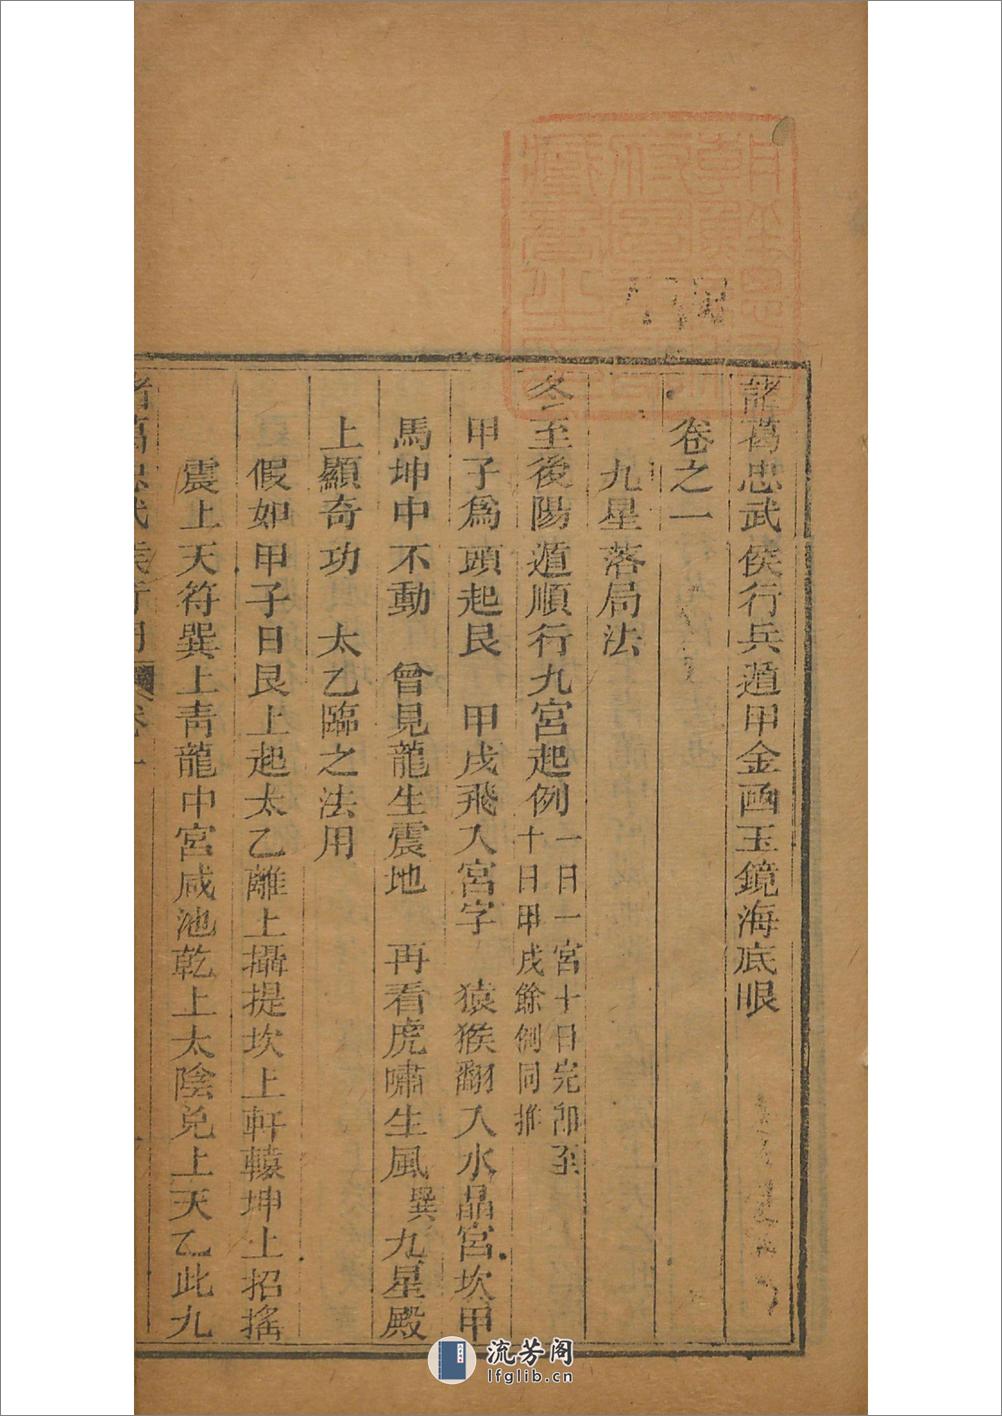 諸葛忠武侯行兵遁甲金函玉鏡海底眼
卷之一
九星落局法
冬至後陽遁順行九宮起例一日一宮十日完卽至十日甲戌餘倒同推
甲子爲頭起艮　甲戌飛入宮字　猿猴翻入水晶宮坎甲
馬坤中不動　曾見龍生震地　再看虎嘯生風巽九星殿
上顯奇功　太乙臨之法用
假如甲子日艮上起太乙離上攝提坎上軒轅坤上招搖
震上天符巽上靑龍中宮咸池乾上太陰兌上天乙此九
流芳阁
lfglib.cn